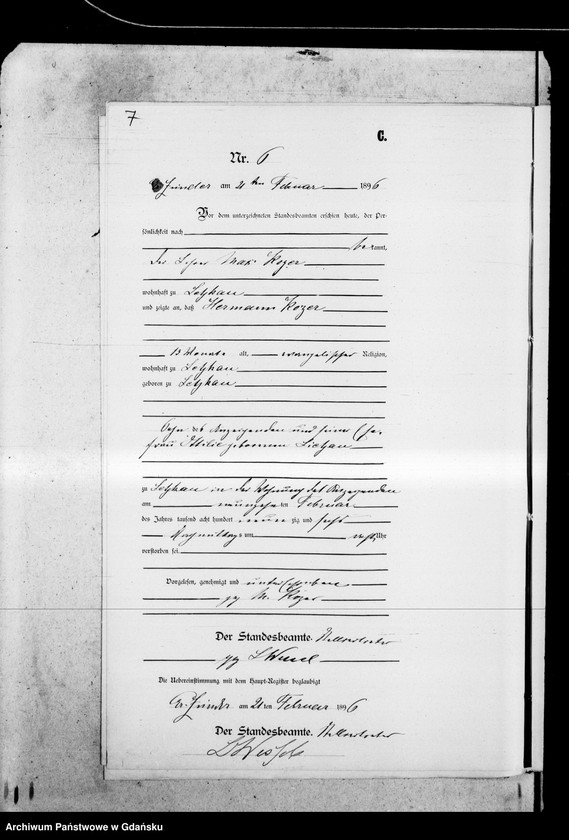 7
C.
Nr. 6
Gr. Zünder am 21 ten Februar 1896
Vor dem unterzeichneten Standesbeamten erschien heute, der Per-
sönlichkeit nach
be kannt,
der Max Kozer
wohnhaft zu Letzkau
und zeigte an, daß Hermann Kozer
13 Monate alt, evangelischer Religion,
wohnhaft zu Letzkau
geboren zu Letzkau
Sohn des Anzeigenden und seiner Ehe-
frau Ottilie geborenen Lietzau
zu Letzkau in der Wohnung des Anzeigenden
am neunzehn ten Februar
des Jahres tausend acht hundert neun zig und sechs
Nachmittags um Uhr
verstorben sei.
Vorgelesen, genehmigt und unterschrieben
gez M. Kozer
Der Standesbeamte.
gez
Die Uebereinstimmung mit dem Haupt-Register beglaubigt
Gr. Zünder am 21 ten Februar 1896
Der Standesbeamte.
Archiwum Państwowe w Gdańsku